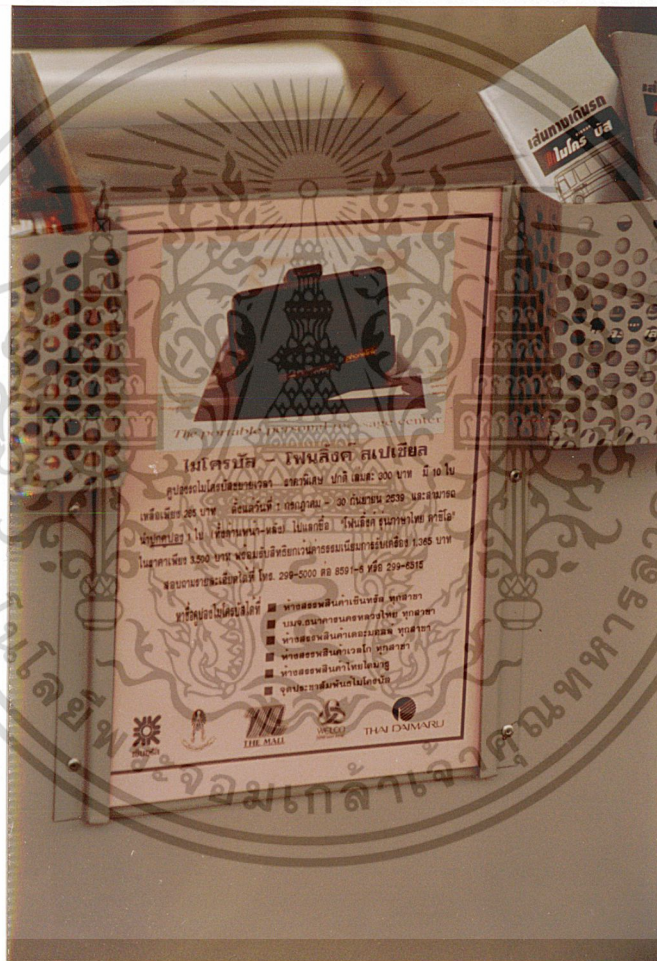 เส้นทางเดินรถ
ไมโครบัส
The portable personal message center
ไมโครบัส - โฟนลิ้งค์ สเปเชียล
คูปองรถไมโครบัสขยายเวลา ราคาพิเศษ ปกติ เล่มละ 300 บาท มี 10 ใบ
เหลือเพียง 265 บาท ตั้งแต่วันที่ 1 กรกฎาคม - 30 กันยายน 2539 และสามารถ
นำปกคูปอง 1 ใบ (ทั้งด้านหน้า-หลัง) ไปแลกซื้อ "โฟนลิ้งค์ รุ่นภาษาไทย คาซิโอ"
ในราคาเพียง 3,500 บาท พร้อมรับสิทธิยกเว้นค่าธรรมเนียมการรับเครื่อง 1,365 บาท
สอบถามรายละเอียดได้ที่ โทร. 299-5000 ต่อ 8591-6 หรือ 299-6315
หาซื้อคูปองไมโครบัสได้ที่ ■ ห้างสรรพสินค้าเซ็นทรัล ทุกสาขา
■ บมจ.ธนาคารนครหลวงไทย ทุกสาขา
■ ห้างสรรพสินค้าเดอะมอลล์ ทุกสาขา
■ ห้างสรรพสินค้าเวลโก้ ทุกสาขา
■ ห้างสรรพสินค้าไทยไดมารู
■ จุดประชาสัมพันธ์ไมโครบัส
THE MALL
WELCO
THAI DAIMARU